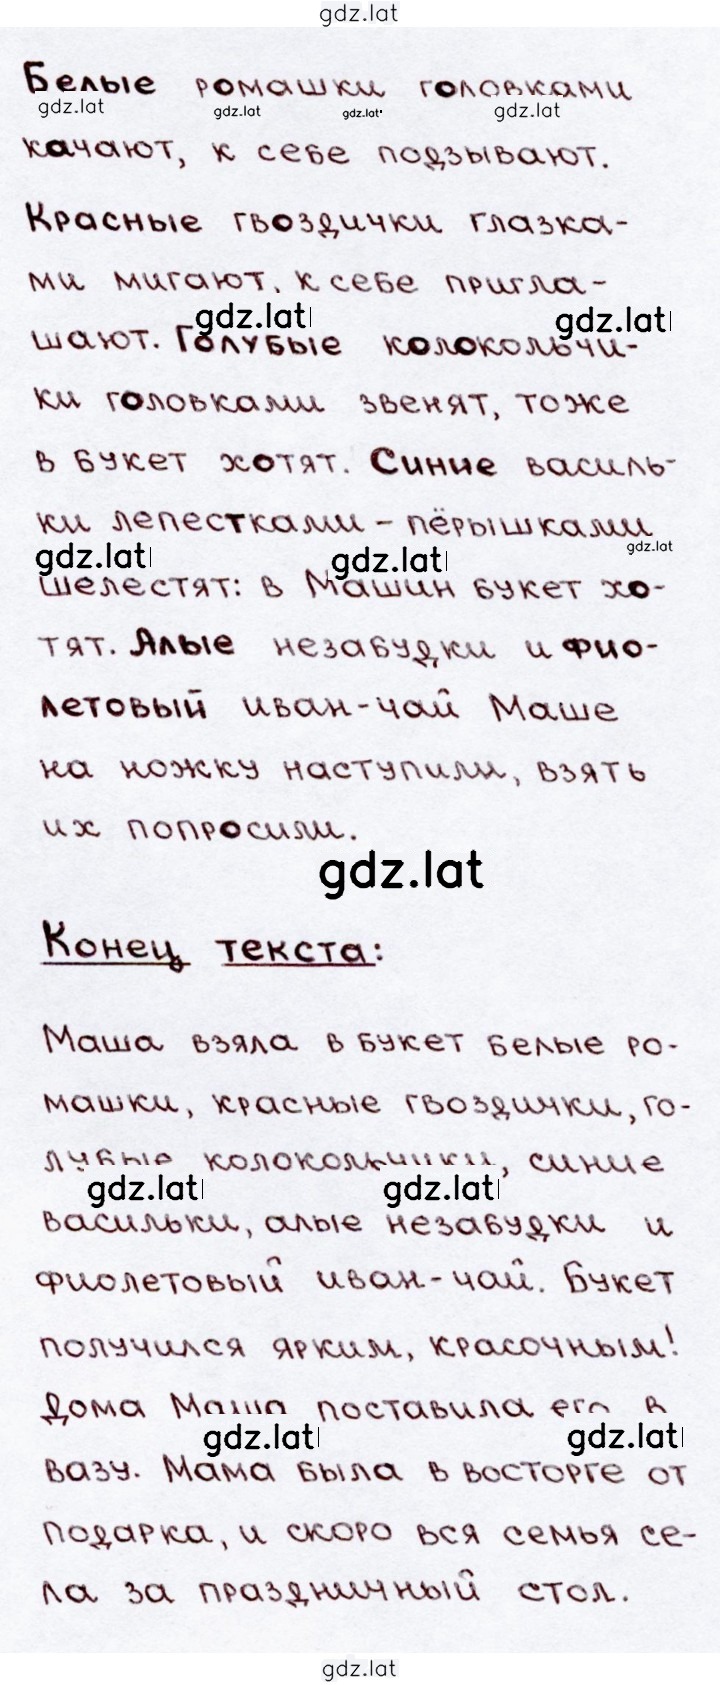 gdz.lat
Белые ромашки головками
gdz.lat gdz.lat gdz.lat gdz.lat
качают, к себе подзывают.
Красные гвоздички глазка-
ми мигают, к себе пригла-
gdz.lat gdz.lat
шают. Голубые колокольчи-
ки головками звенят, тоже
в букет хотят. Синие василь-
ки лепестками - пёрышками
gdz.lat gdz.lat gdz.lat
шелестят: в Машин букет хо-
тят. Алые незабудки и фио-
летовый иван-чай Маше
на ножку наступили, взять
их попросили.
gdz.lat
Конец текста:
Маша взяла в букет белые ро-
машки, красные гвоздички, го-
лубые колокольчики, синие
gdz.lat gdz.lat
васильки, алые незабудки и
фиолетовый иван-чай. Букет
получился ярким, красочным!
Дома Маша поставила его в
gdz.lat gdz.lat
вазу. Мама была в восторге от
подарка, и скоро вся семья се-
ла за праздничный стол.
gdz.lat